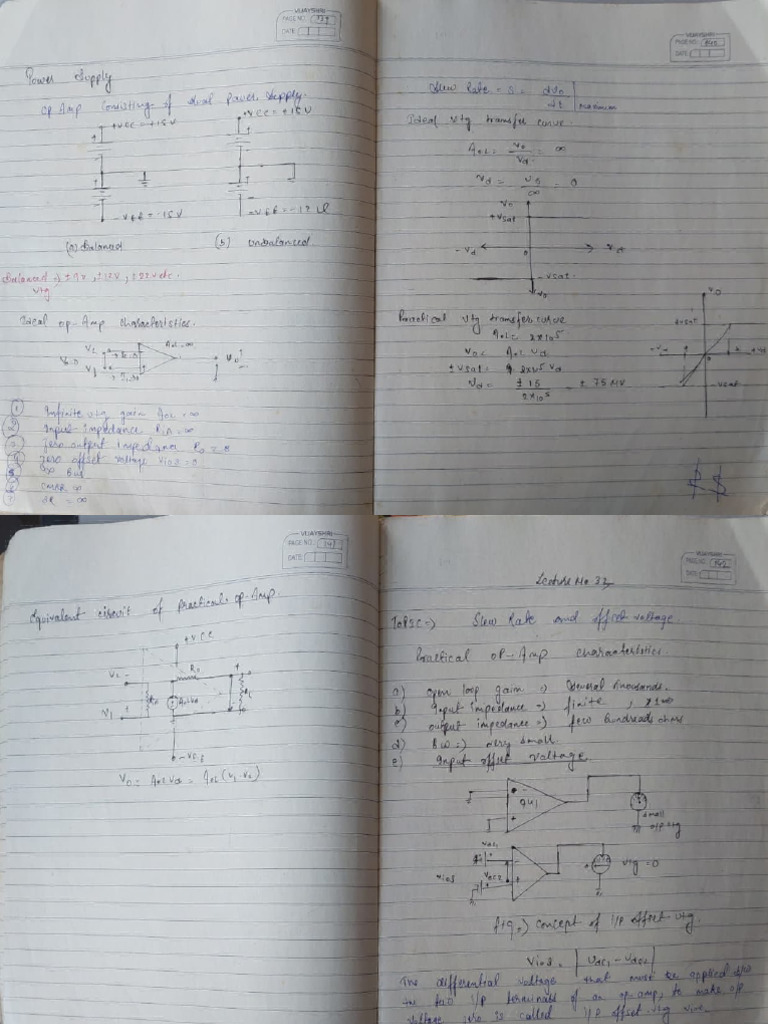 VIJAYSHRI
PAGE NO. 139
DATE
Power Supply
op Amp Consisting of dual power supply.
+VCC = +15V
+VCC = +15V
-VEE = -15V
-VEE = -12V
(a) Balanced
(b) unbalanced
Balanced => ±9V, ±12V, ±22V dc.
vtg
Ideal op-Amp characteristics.
AOL = ∞
V2
V1
① Infinite vtg gain AOL = ∞
② Input Impedance Rin = ∞
③ Zero output Impedance Ro = 0
④ zero offset voltage Vios = 0
⑤ ∞ BW
⑥ CMRR ∞
⑦ SR = ∞
VIJAYSHRI
PAGE NO. 140
DATE
Slew Rate = S = dVo
dt | maximum
Ideal vtg transfer curve
AOL = Vo/Vd = ∞
Vd = Vo/∞ = 0
Vo
+Vsat
-Vd
0
Vd
-Vsat
-Vo
Practical vtg transfer curve
AOL = 2x10^5
Vo = AOL Vd
±Vsat = 2x10^5 Vd
Vd = ±15/2x10^5 = ±75 µV
Vo
+Vsat
-Vsat
VIJAYSHRI
PAGE NO. 141
DATE
Equivalent circuit of practical op-Amp.
+VCC
V2 -
Ro
V1 +
RL
-VEE
Vo = AOL Vd = AOL (V1-V2)
VIJAYSHRI
PAGE NO. 142
DATE
Lecture No 33
Topic => Slew Rate and offset voltage
Practical op-Amp characteristics.
a) open loop gain => Several thousands.
b) Input impedance => finite,
c) output impedance => few hundreds ohms
d) BW => very small
e) Input offset voltage
741
small
o/p vtg
Vdc1
Vios
Vdc2
vtg = 0
fig => concept of I/P offset vtg.
Vios = |Vdc1 - Vdc2|
The differential voltage that must be applied b/w
the two I/P terminals of an op-amp, to make o/p
voltage zero is called I/P offset vtg